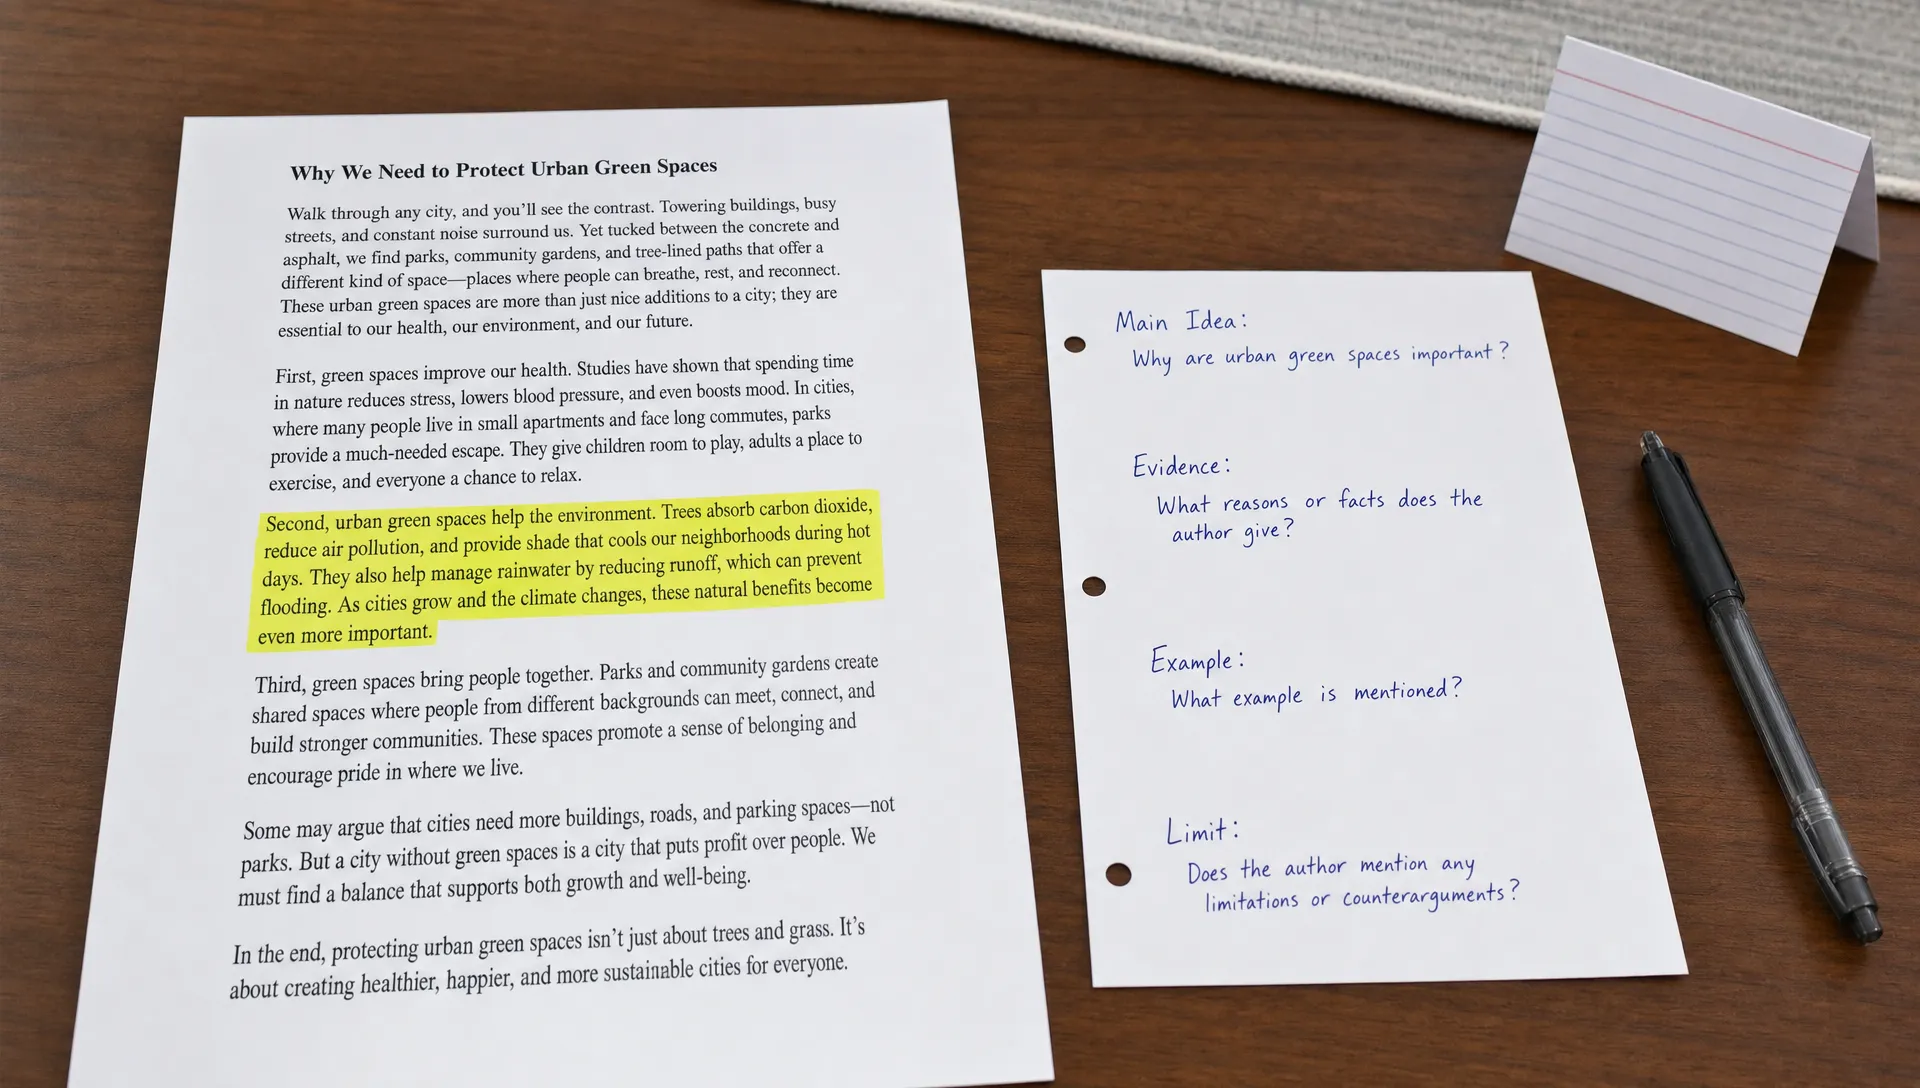 Why We Need to Protect Urban Green Spaces
Walk through any city, and you’ll see the contrast. Towering buildings, busy
streets, and constant noise surround us. Yet tucked between the concrete and
asphalt, we find parks, community gardens, and tree-lined paths that offer a
different kind of space—places where people can breathe, rest, and reconnect.
These urban green spaces are more than just nice additions to a city; they are
essential to our health, our environment, and our future.
First, green spaces improve our health. Studies have shown that spending time
in nature reduces stress, lowers blood pressure, and even boosts mood. In cities,
where many people live in small apartments and face long commutes, parks
provide a much-needed escape. They give children room to play, adults a place to
exercise, and everyone a chance to relax.
Second, urban green spaces help the environment. Trees absorb carbon dioxide,
reduce air pollution, and provide shade that cools our neighborhoods during hot
days. They also help manage rainwater by reducing runoff, which can prevent
flooding. As cities grow and the climate changes, these natural benefits become
even more important.
Third, green spaces bring people together. Parks and community gardens create
shared spaces where people from different backgrounds can meet, connect, and
build stronger communities. These spaces promote a sense of belonging and
encourage pride in where we live.
Some may argue that cities need more buildings, roads, and parking spaces—not
parks. But a city without green spaces is a city that puts profit over people. We
must find a balance that supports both growth and well-being.
In the end, protecting urban green spaces isn’t just about trees and grass. It’s
about creating healthier, happier, and more sustainable cities for everyone.
Main Idea:
Why are urban green spaces important?
Evidence:
What reasons or facts does the
author give?
Example:
What example is mentioned?
Limit:
Does the author mention any
limitations or counterarguments?